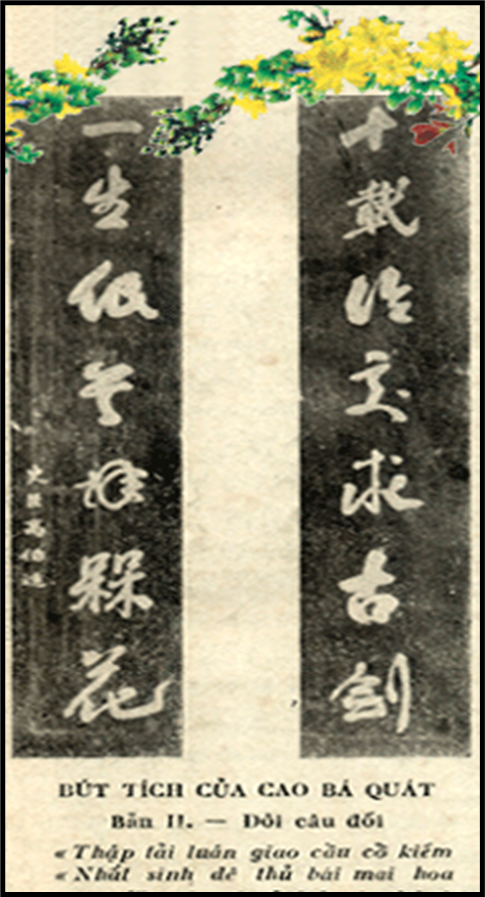 十載論交求古劍
一生低首拜槑花
高伯适
BÚT TÍCH CỦA CAO BÁ QUÁT
Bản II. — Đôi câu đối
« Thập tải luân giao cầu cổ kiếm
« Nhất sinh đê thủ bái mai hoa